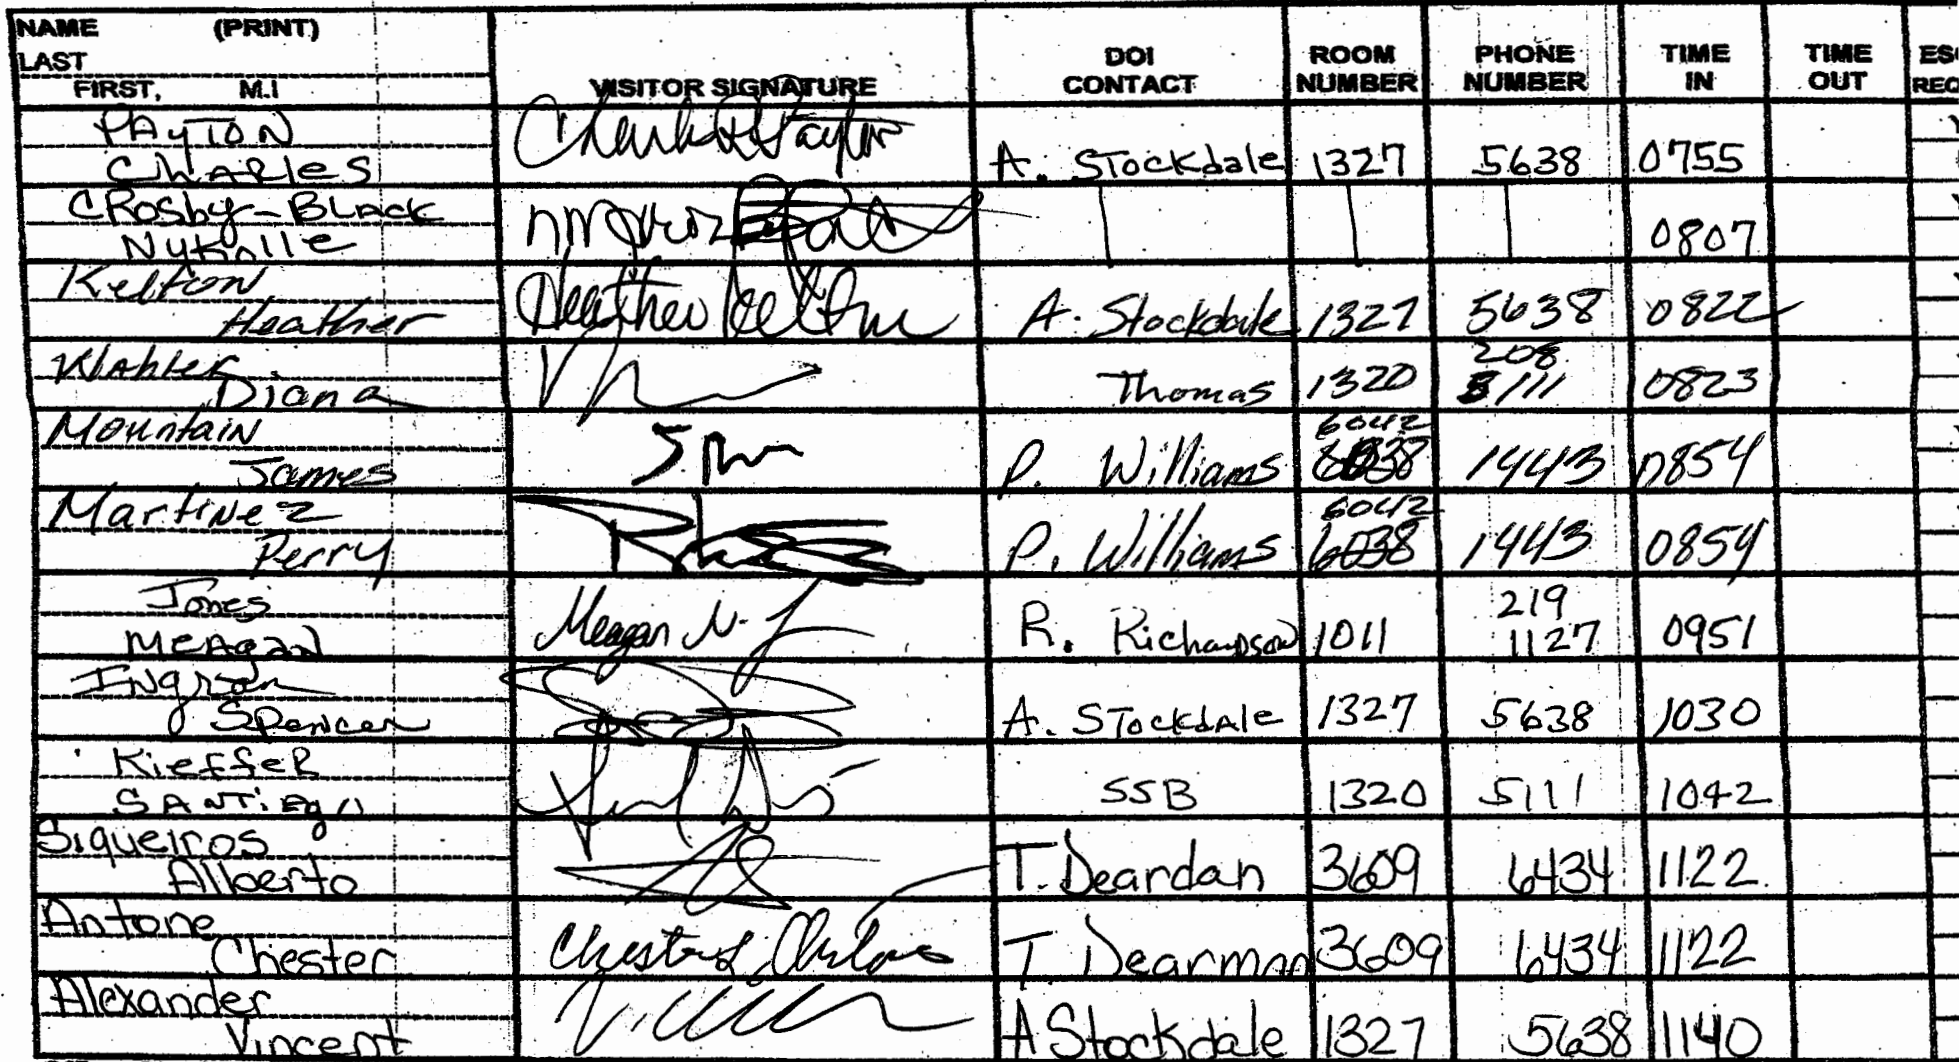 NAME (PRINT)
LAST
FIRST, M.I
VISITOR SIGNATURE
DOI CONTACT
ROOM NUMBER
PHONE NUMBER
TIME IN
TIME OUT
PAYTON
CHARLES
A. Stockdale 1327 5638 0755
CROSBY-BLACK
0807
Kelton
Heather
Heather Kelton
A. Stockdale 1327 5638 0822
Diana
Thomas 1320 208
5111 0823
Mountain
James
P. Williams 6042
6038 1443 0854
Martinez
Perry
P. Williams 6042
6038 1443 0854
Jones
MEAGAN
Meagan N. J
R. Richardson 1011 219
1127 0951
Ingram
Spencer
A. Stockdale 1327 5638 1030
Kieffer
SANTIAGO
SSB 1320 5111 1042
Siqueiros
Alberto
T. Deardan 3609 6434 1122
Antone
Chester
T. Dearman 3609 6434 1122
Alexander
Vincent
A Stockdale 1327 5638 1140